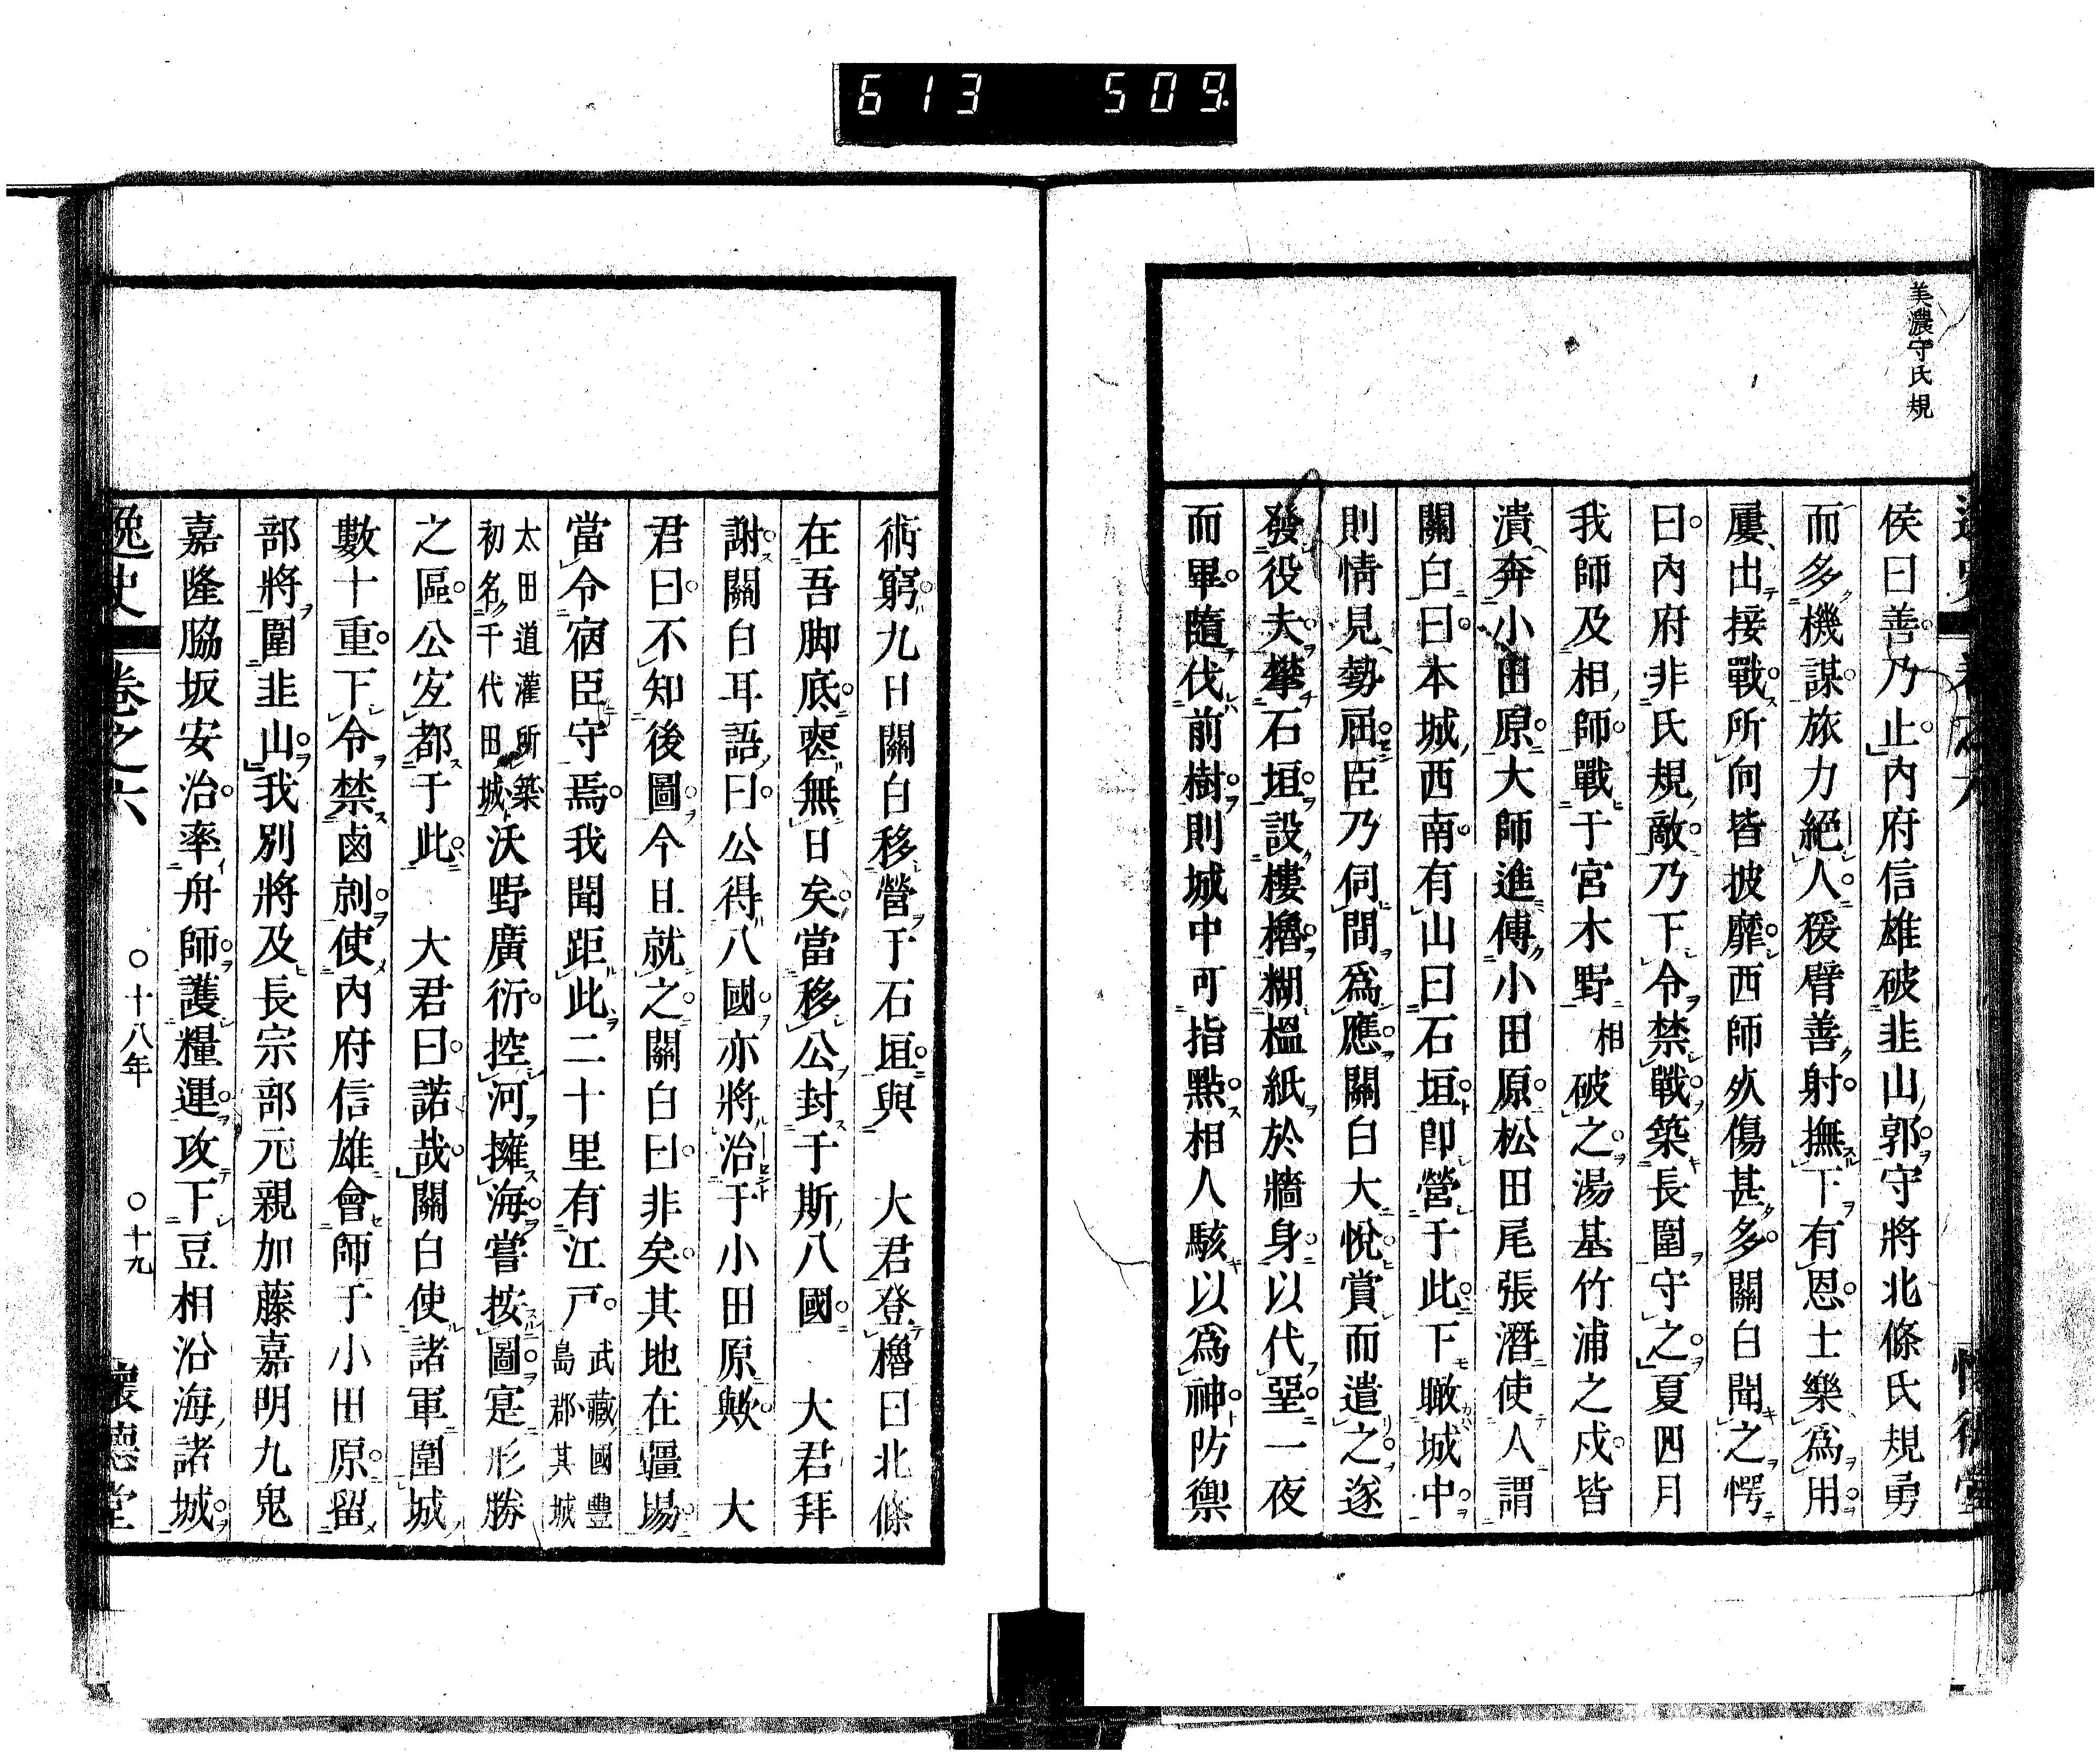 613 509
美濃守氏規
侯曰善乃止內府信雄破韭山郭守將北條氏規勇
而多機謀旅力絕人猨臂善射撫下有恩士樂爲用
屢出接戰所向皆披靡西師死傷甚多關白聞之愕
曰內府非氏規敵乃下令禁戰築長圍守之夏四月
我師及相師戰于宮木野相破之湯基竹浦之戍皆
潰奔小田原大師進傅小田原松田尾張潛使人謂
關白曰本城西南有山曰石垣卽營于此下瞰城中
則情見勢屈臣乃伺間爲應關白大悅賞而遣之遂
發役夫攀石垣設樓櫓糊榅紙於牆身以代堊一夜
而畢隨伐前樹則城中可指點相人駭以爲神防禦
術窮九日關白移營于石垣與 大君登櫓曰北條
在吾脚底喪無日矣當移公封于斯八國 大君拜
謝關白耳語曰公得八國亦將治于小田原歟 大
君曰不知後圖今且就之關白曰非矣其地在疆場
當令宿臣守焉我聞距此二十里有江戸武藏國豐
島郡其城
太田道灌所築
初名千代田城沃野廣衍控河擁海嘗按圖寔形勝
之區公宜都于此 大君曰諾哉關白使諸軍圍城
數十重下令禁鹵剠使內府信雄會師于小田原留
部將圍韭山我別將及長宗部元親加藤嘉明九鬼
嘉隆脇坂安治率舟師護糧運攻下豆相沿海諸城
逸史 卷之六 ○十八年 ○十九 懷德堂